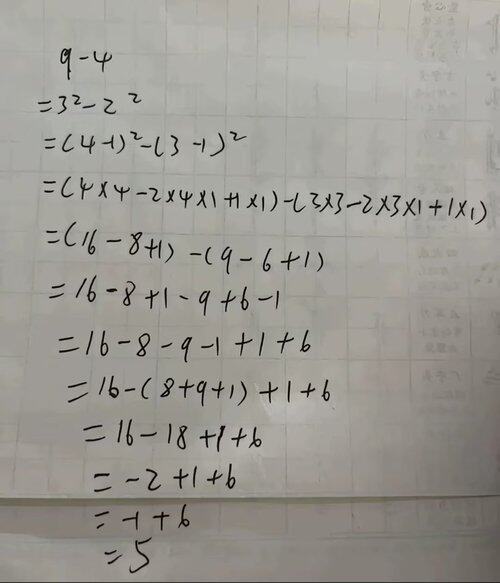 9-4
=3²-2²
=(4-1)²-(3-1)²
=(4×4-2×4×1+1×1)-(3×3-2×3×1+1×1)
=(16-8+1)-(9-6+1)
=16-8+1-9+6-1
=16-8-9-1+1+6
=16-(8+9+1)+1+6
=16-18+1+6
=-2+1+6
=-1+6
=5